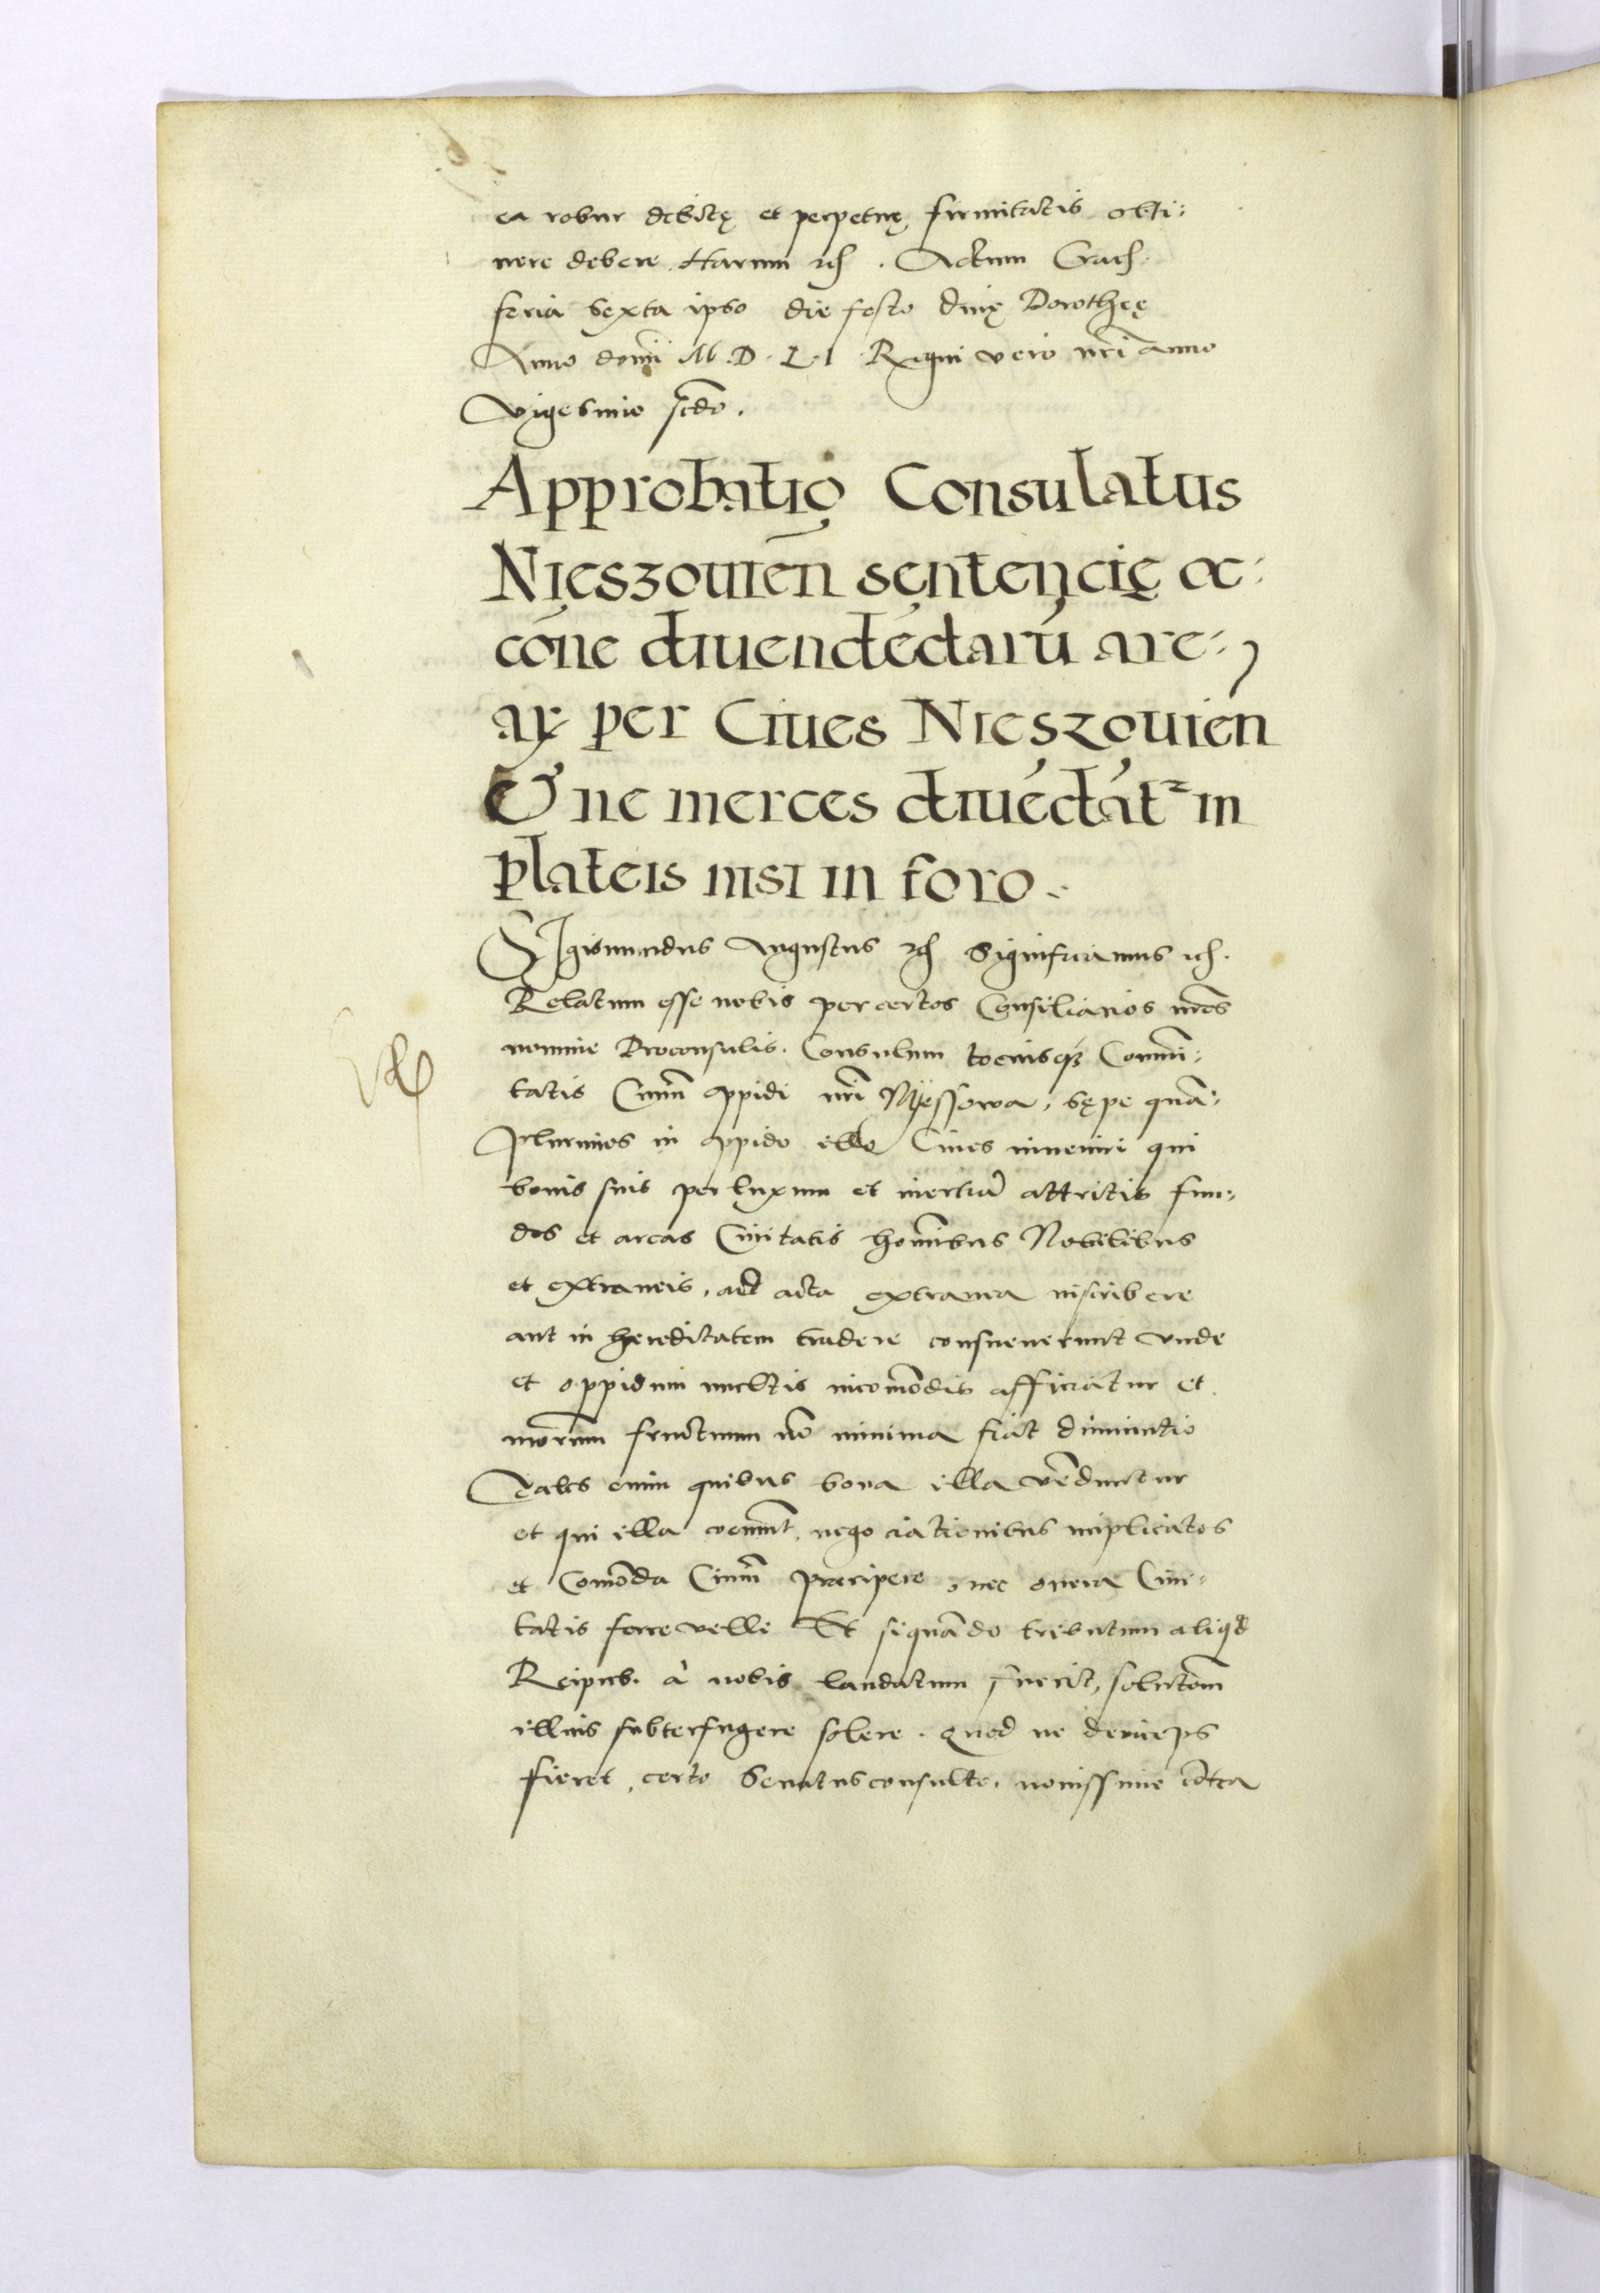 ea robur debitę et perpetuę firmitatis obti:
nere debere. Harum etc. Actum Crac.
feria sexta ipso die festo diuę Dorotheę
Anno domi M.D.L.I. Regni vero nri anno
vigesimo scdo.
Approbatio Consulatus
Nieszouien sentencię
cone diuendedarū are:
aꝝ per Ciues Nieszouien
Et ne merces diuēdāt² in
plateis nisi in foro.
Sigismundus Augustus etc Significamus etc.
Relatum esse nobis per certos Consiliarios nros
nomine Proconsulis. Consulum tociusqꝫ Commi:
tatis Ciuim oppidi nri Nyessowa, sępe quā:
plurimos in oppido illo Ciues inueniri qui
bonis suis per luxum et inertiā attritis fun:
dos et areas Ciuitatis hominibus Nobilibus
et extraneis, ad acta extranea inscribere
aut in hereditatem tradere consueuerunt vnde
et oppidum multis incomodis afficiatur et
fructuum nō minima fiat diminutio
Tales enim quibus bona illa vēduntur
et qui illa emunt, negociationibus implicatos
et Comoda Ciuim praeripere, nec onera Ciui:
tatis ferre velle Et siquādo tributum aliqd
Reipub. à nobis laudatum fuerit, solutōem
illius subterfugere solere. Quod ne deinceps
fieret, certo Senatusconsulto, nouissime